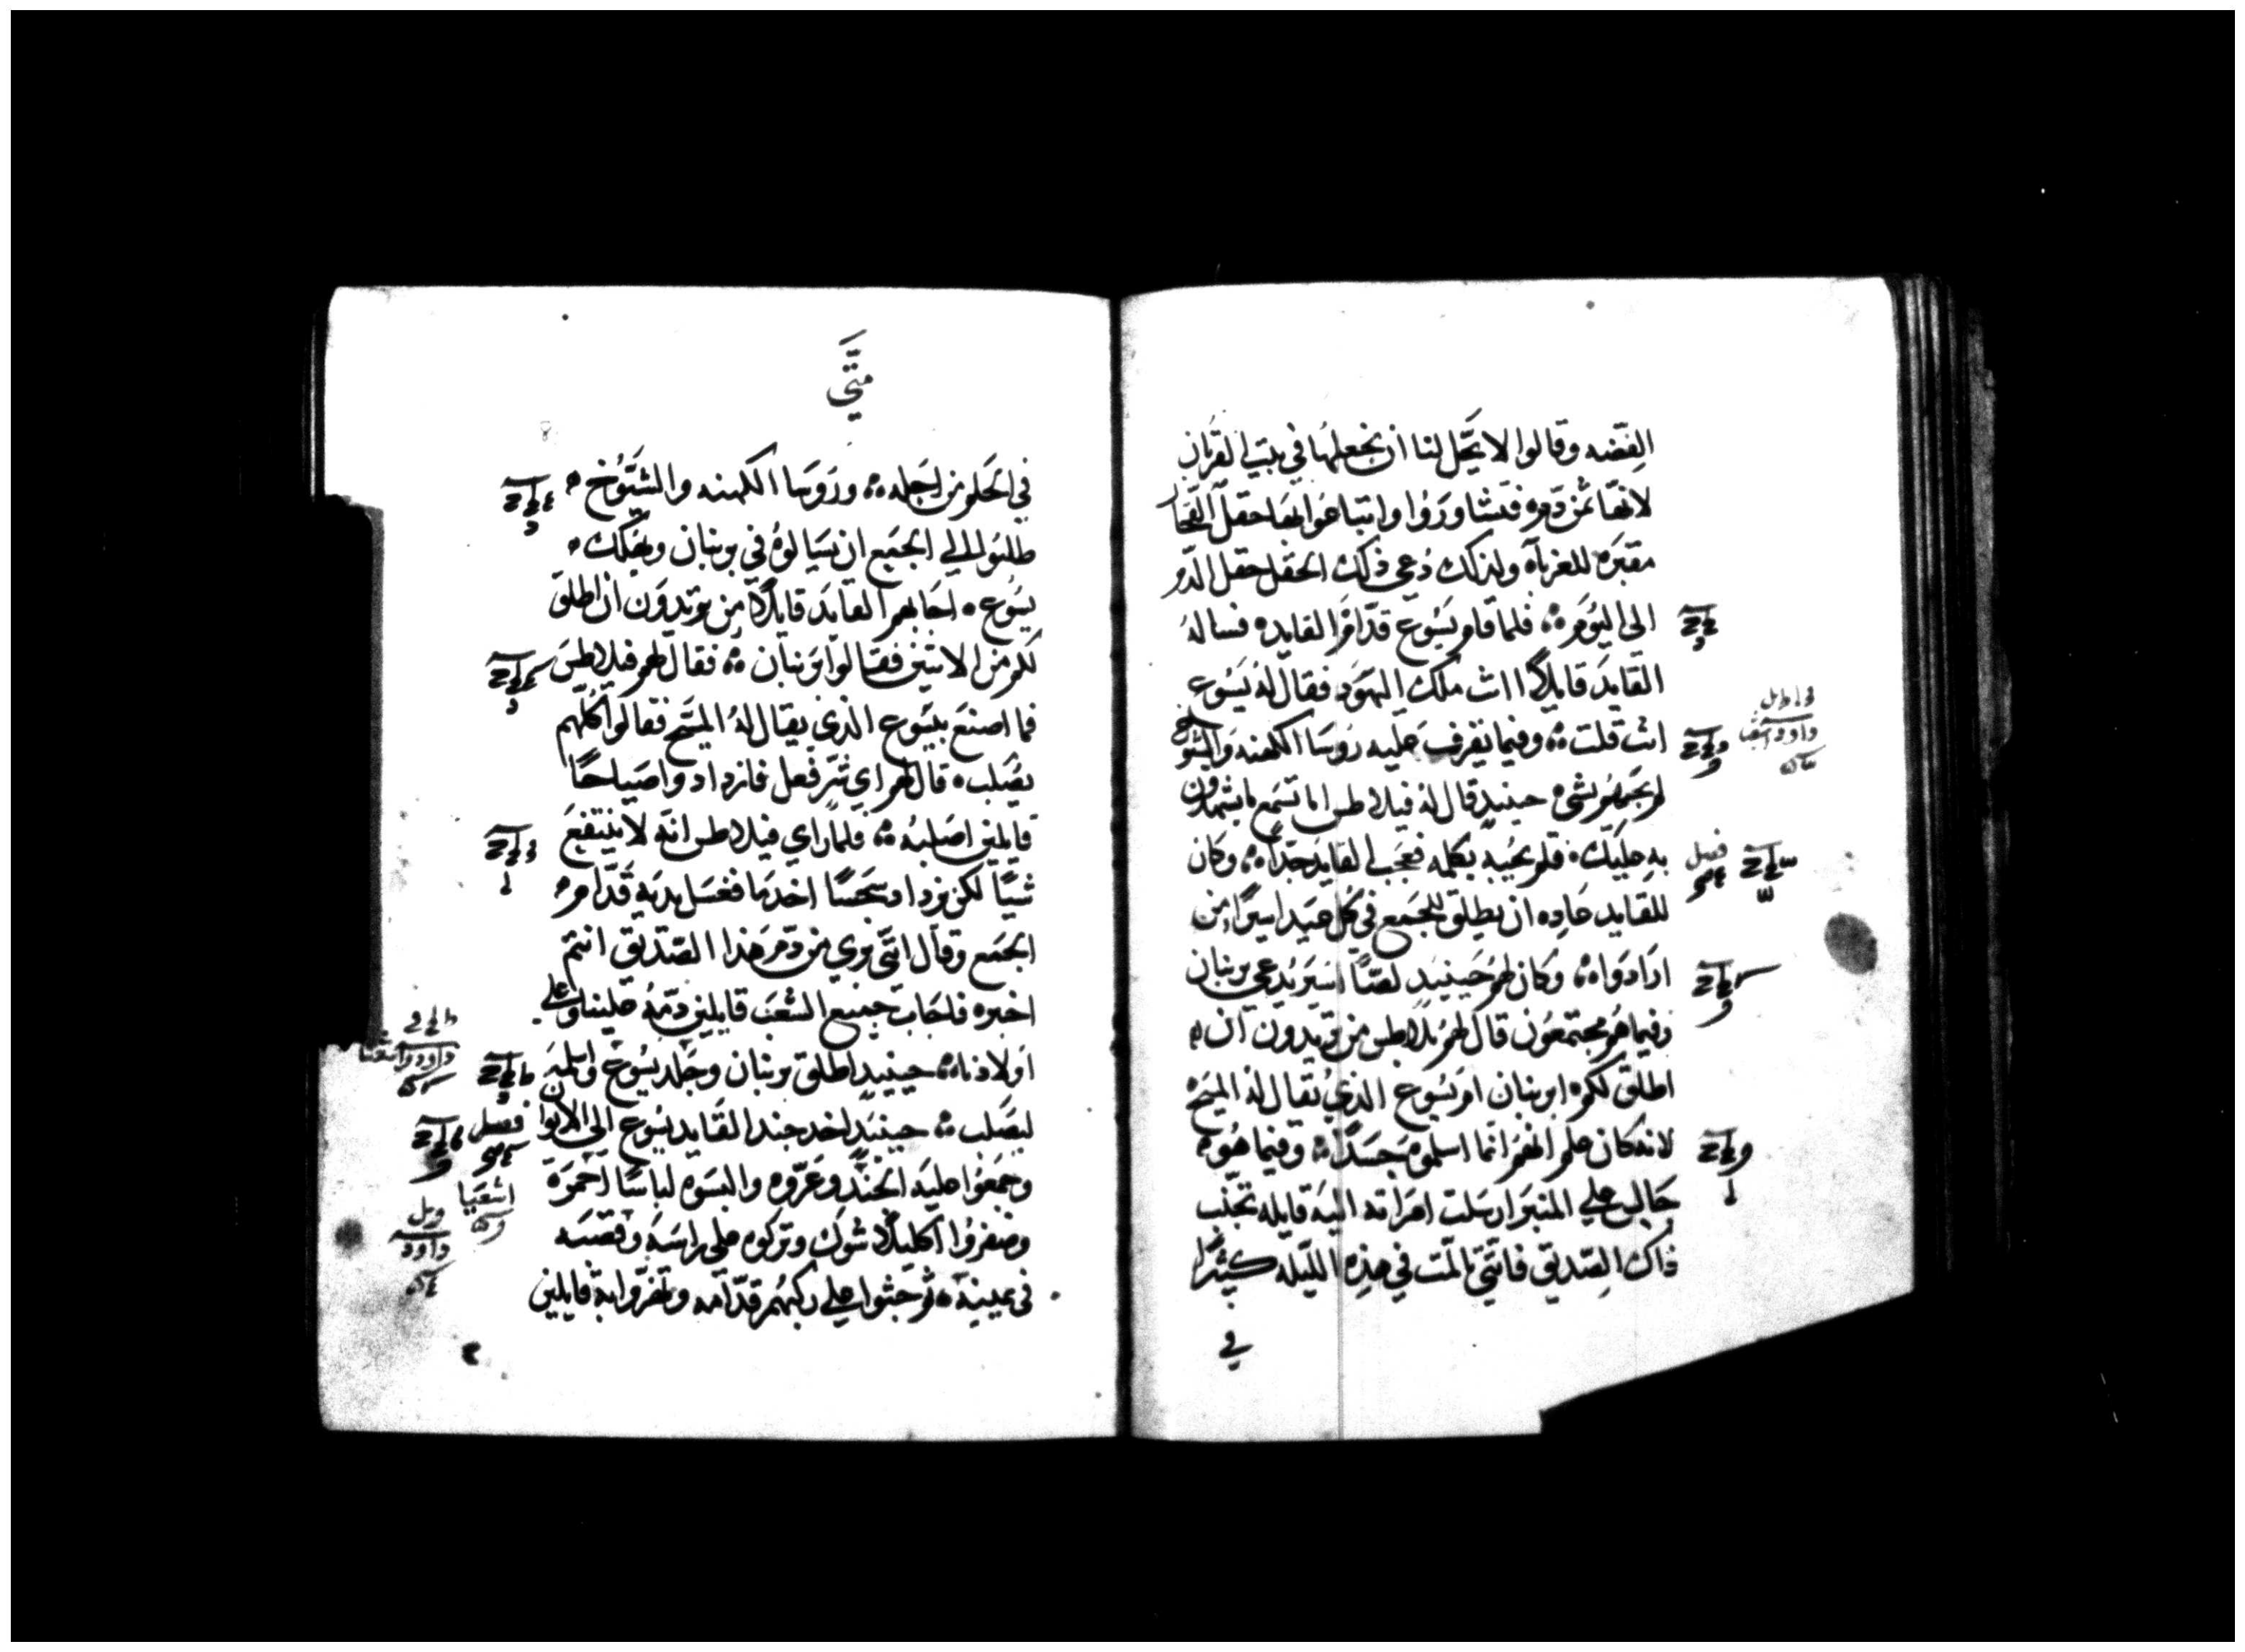 الفضه وقالوا لا يحل لنا ان نجعلها في بيت القربان
لانها ثمن دم ه فتشاوروا وابتاعوا بها حقل الفخا
مقبره للغرباه ولذلك دعي ذلك الحقل حقل الدم
الى اليوم ه فلما قام يسوع قدام القايد ه فساله
القايد قايلا انت ملك اليهود فقال له يسوع
انت قلت ه وفيما يقرف عليه روسا الكهنه والشيوخ
لم يجبهم بشي ه حينيد قال له فيلاطس اما تسمع ما يشهدون
به عليك ه فلم يجيبه بكلمه فعجب القايد جدا ه وكان
للقايد عاده ان يطلق للجمع في كل عيد اسيرا من
ارادواه وكان لهم حينيد لصا اسير يدعي برنبان
وفيما هم مجتمعون قال لهم بلاطس من تريدون ان
اطلق لكم ه ابرنبان ام يسوع الذي يقال له المسيح
لانه كان علم انهم انما اسلموه حسدا ه وفيما هو ه
جالس علي المنبر ارسلت امراته اليه قايله تجنب
ذاك الصديق فانني تالمت في هذه الليله كثيرا
في
فصل
داود
متى
في الحلم من اجله ه وروسا الكهنه والشيوخ
طلبوا الي الجمع ان يسالوه في برنبان ويهلك
يسوع ه اجابهم القايد قايلا من تريدون ان اطلق
لكم من الاثنين فقالوا ابرنبان ه فقال لهم فيلاطس
فما اصنع بيسوع الذي يقال له المسيح فقالوا كلهم
يصلب ه قال لهم اي شر فعل فازدادوا صياحا
قايلين اصلبه ه فلما راي فيلاطس انه لا ينتفع
شيا لكن يزداد سجسا اخد ما فغسل يديه قدام
الجمع وقال انني بري من دم هذا الصديق انتم
اخبره فاجاب جميع الشعب قايلين دمه علينا وعلي
اولادنا ه حينيد اطلق برنبان وجلد يسوع واسلمه
ليصلب ه حينيد اخد جند القايد يسوع الي الابوا
وجمعوا عليه الجند وعروه والبسوه لباسا احمر ه
وضفروا اكليلا شوك وتركوه علي راسه وقصبه
في يمينه ه ثم جثوا علي ركبهم قدامه وتهزوا به قايلين
فصل
اشعيا
داود